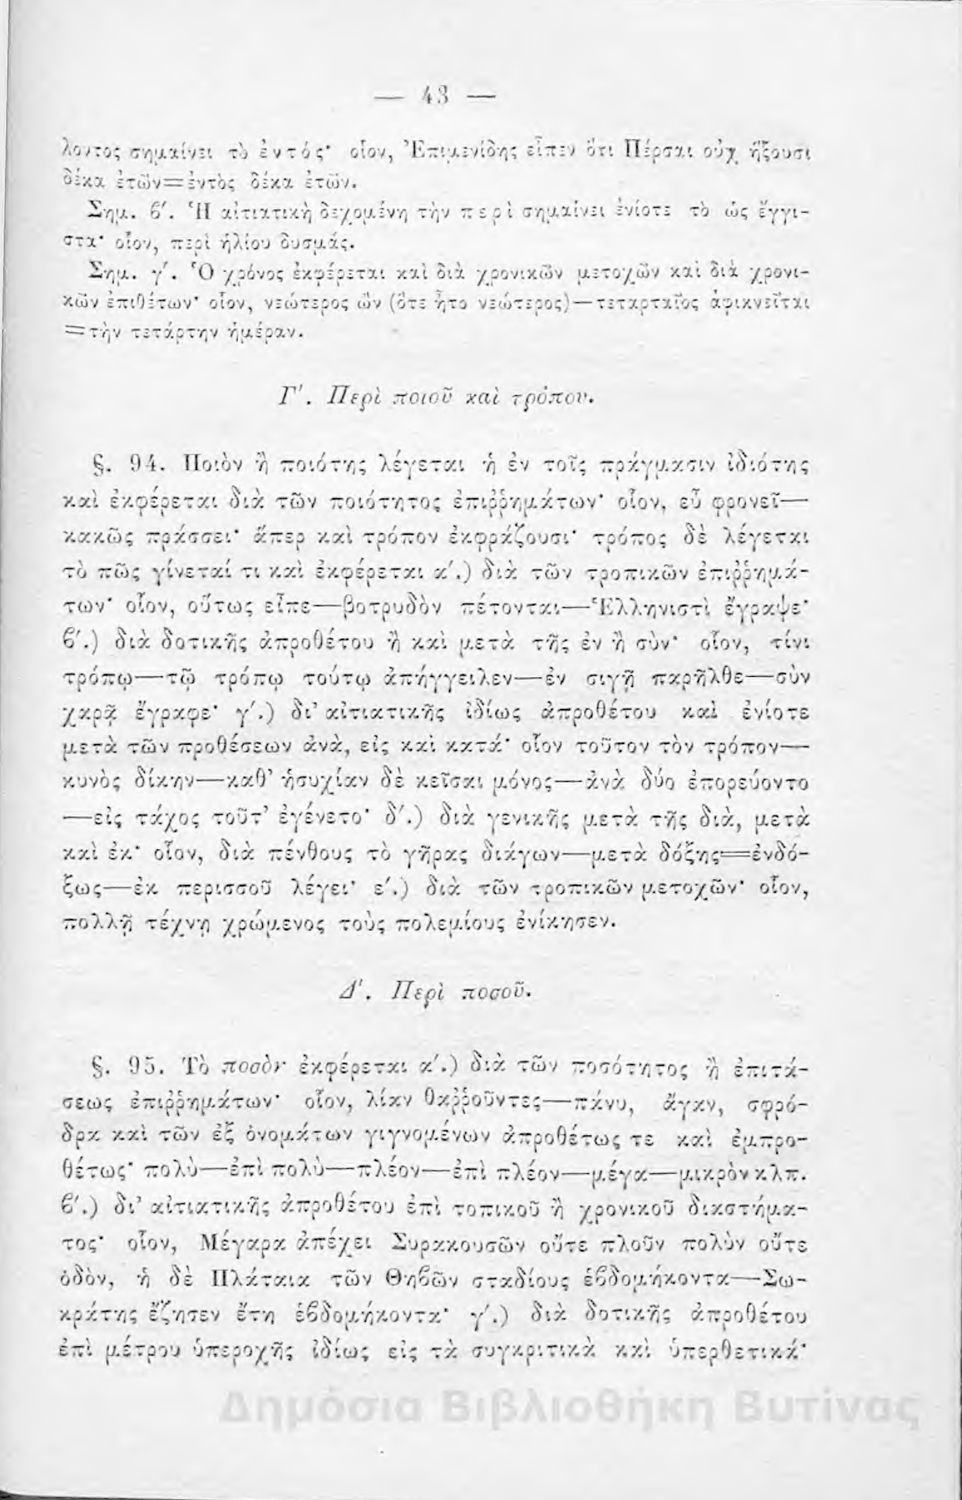 — 43 —
λοντος σημαίνει τὸ ἐντός· οἷον, Ἐπιμενίδης εἶπεν ὅτι Πέρσαι οὐχ ἥξουσι
δέκα ἐτῶν=ἐντὸς δέκα ἐτῶν.
Σημ. ϐ'. Ἡ αἰτιατικὴ δεχομένη τὴν περὶ σημαίνει ἐνίοτε τὸ ὡς ἔγγι-
στα· οἷον, περὶ ἡλίου δυσμάς.
Σημ. γ'. Ὁ χρόνος ἐκφέρεται καὶ διὰ χρονικῶν μετοχῶν καὶ διὰ χρονι-
κῶν ἐπιθέτων· οἷον, νεώτερος ὢν (ὅτε ἦτο νεώτερος)—τεταρταῖος ἀφικνεῖται
=τὴν τετάρτην ἡμέραν.
Γ'. Περὶ ποιοῦ καὶ τρόπου.
§. 94. Ποιὸν ἢ ποιότης λέγεται ἡ ἐν τοῖς πράγμασιν ἰδιότης
καὶ ἐκφέρεται διὰ τῶν ποιότητος ἐπιῤῥημάτων· οἷον, εὖ φρονεῖ—
κακῶς πράσσει· ἅπερ καὶ τρόπον ἐκφράζουσι· τρόπος δὲ λέγεται
τὸ πῶς γίνεταί τι καὶ ἐκφέρεται α'.) διὰ τῶν τροπικῶν ἐπιῤῥημά-
των· οἷον, οὕτως εἶπε—βοτρυδὸν πέτονται—Ἑλληνιστὶ ἔγραψε·
ϐ'.) διὰ δοτικῆς ἀπροθέτου ἢ καὶ μετὰ τῆς ἐν ἢ σύν· οἷον, τίνι
τρόπῳ—τῷ τρόπῳ τούτῳ ἀπήγγειλεν—ἐν σιγῇ παρῆλθε—σὺν
χαρᾷ ἔγραφε· γ'.) δι' αἰτιατικῆς ἰδίως ἀπροθέτου καὶ ἐνίοτε
μετὰ τῶν προθέσεων ἀνὰ, εἰς καὶ κατά· οἷον τοῦτον τὸν τρόπον—
κυνὸς δίκην—καθ' ἡσυχίαν δὲ κεῖσαι μόνος—ἀνὰ δύο ἐπορεύοντο
—εἰς τάχος τοῦτ' ἐγένετο· δ'.) διὰ γενικῆς μετὰ τῆς διὰ, μετὰ
καὶ ἐκ· οἷον, διὰ πένθους τὸ γῆρας διάγων—μετὰ δόξης=ἐνδό-
ξως—ἐκ περισσοῦ λέγει· ε'.) διὰ τῶν τροπικῶν μετοχῶν· οἷον,
πολλῇ τέχνῃ χρώμενος τοὺς πολεμίους ἐνίκησεν.
Δ'. Περὶ ποσοῦ.
§. 95. Τὸ ποσὸν ἐκφέρεται α'.) διὰ τῶν ποσότητος ἢ ἐπιτά-
σεως ἐπιῤῥημάτων· οἷον, λίαν θαῤῥοῦντες—πάνυ, ἄγαν, σφρό-
δρα καὶ τῶν ἐξ ὀνομάτων γιγνομένων ἀπροθέτως τε καὶ ἐμπρο-
θέτως· πολὺ—ἐπὶ πολὺ—πλέον—ἐπὶ πλέον—μέγα—μικρὸν κλπ.
ϐ'.) δι' αἰτιατικῆς ἀπροθέτου ἐπὶ τοπικοῦ ἢ χρονικοῦ διαστήμα-
τος· οἷον, Μέγαρα ἀπέχει Συρακουσῶν οὔτε πλοῦν πολὺν οὔτε
ὁδὸν, ἡ δὲ Πλάταια τῶν Θηϐῶν σταδίους ἑϐδομήκοντα—Σω-
κράτης ἔζησεν ἔτη ἑϐδομήκοντα· γ'.) διὰ δοτικῆς ἀπροθέτου
ἐπὶ μέτρου ὑπεροχῆς ἰδίως εἰς τὰ συγκριτικὰ καὶ ὑπερθετικά·
Δημόσια Βιβλιοθήκη Βυτίνας